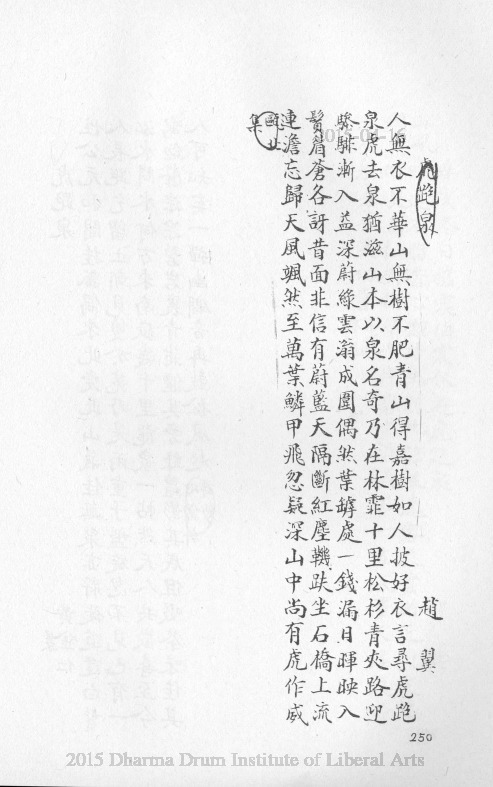 虎跑泉　趙翼
人無衣不華山無樹不肥青山得嘉樹如人披好衣言尋虎跑
泉虎去泉猶滋山本以泉名奇乃在林霏十里松杉青夾路迎
驂騑漸入益深蔚綠雲滃成圍偶然葉罅處一錢漏日暉映入
鬚眉蒼各訝昔面非信有蔚藍天隔斷紅塵鞿趺坐石橋上流
連澹忘歸天風颯然至萬葉鱗甲飛忽疑深山中尚有虎作威
甌北集
250
2015 Dharma Drum Institute of Liberal Arts